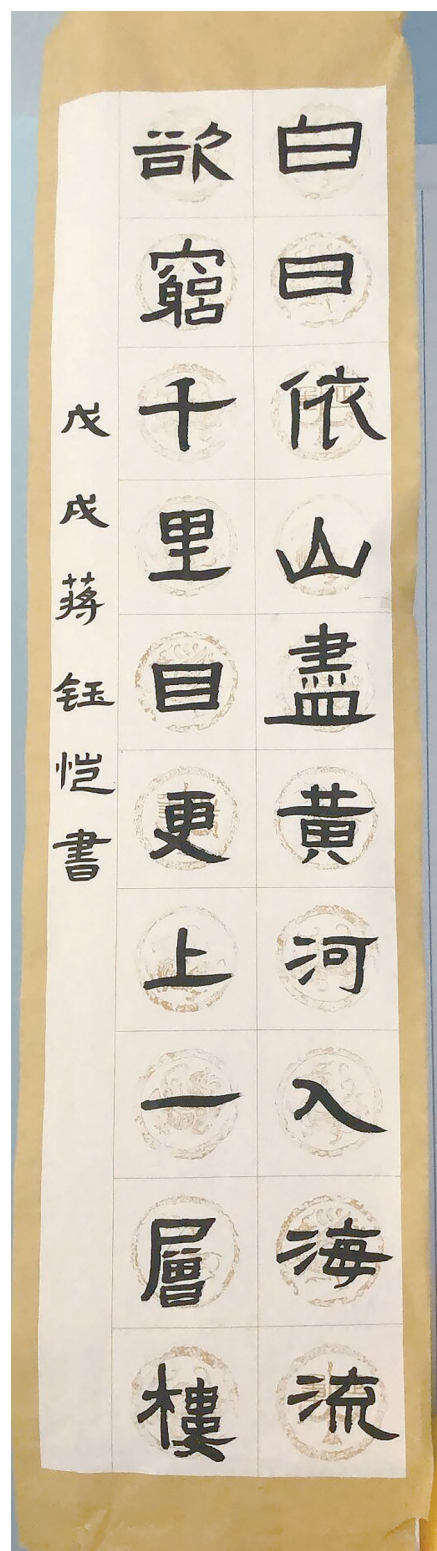 白日依山盡黃河入海流
欲窮千里目更上一層樓
戊戌蔣钰恺書